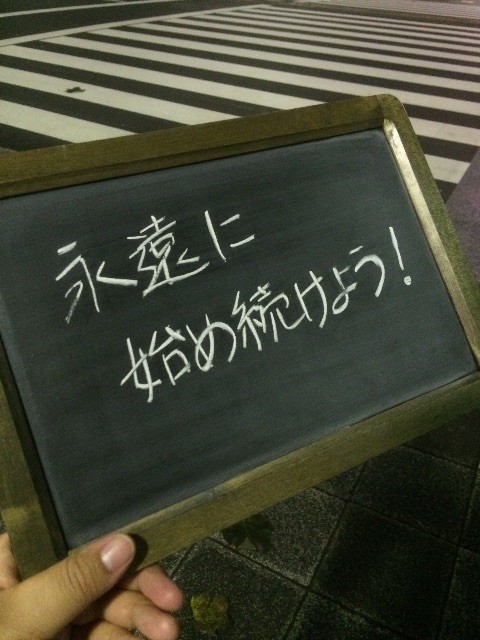 永遠に
始め続けよう!